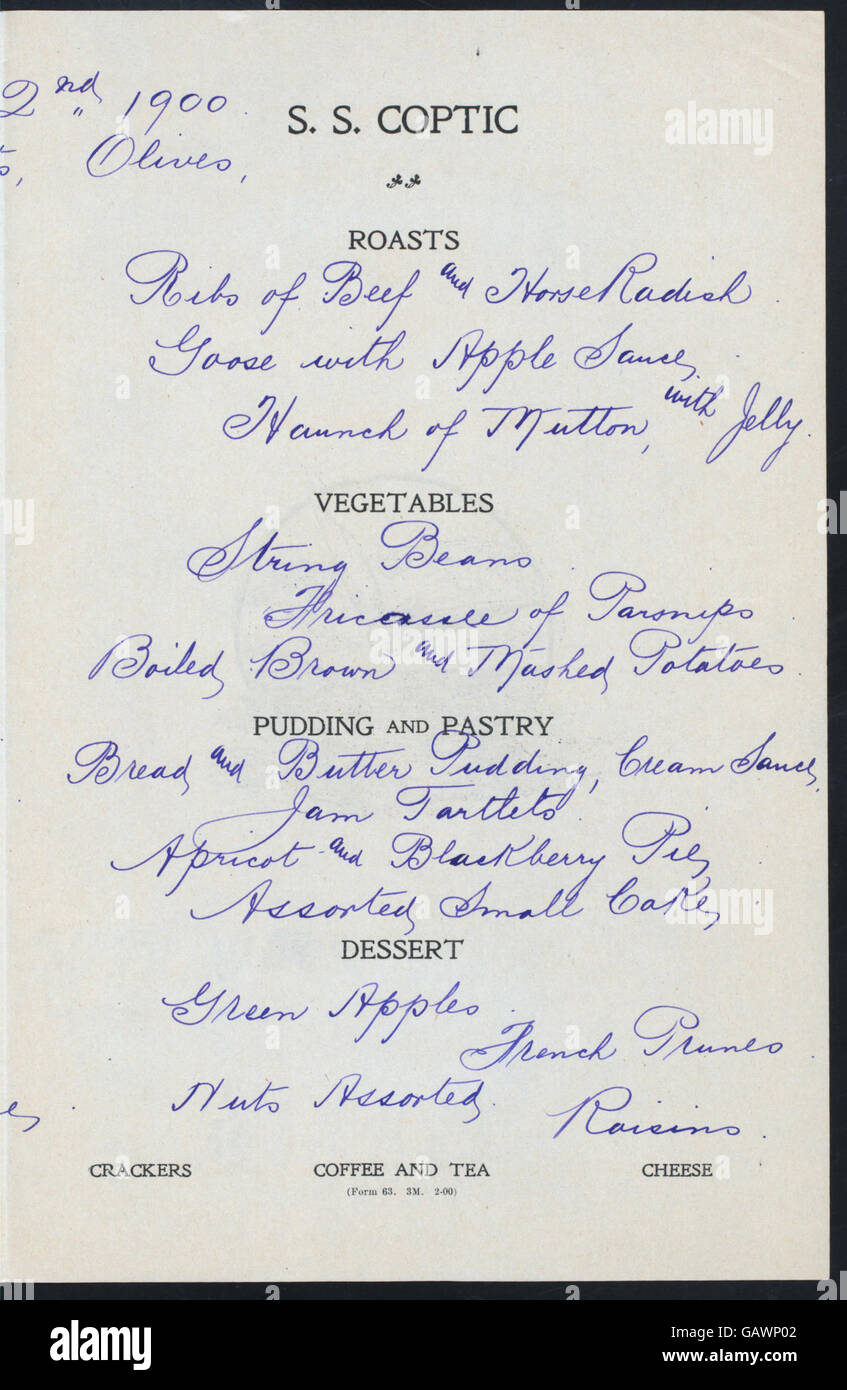 2nd 1900.
S. S. COPTIC
s, Olives,
ROASTS
Ribs of Beef and Horse Radish.
Goose with Apple Sauce.
Haunch of Mutton, with Jelly.
VEGETABLES
String Beans.
Fricassee of Parsnips.
Boiled, Brown and Mashed Potatoes.
PUDDING AND PASTRY
Bread and Butter Pudding, Cream Sauce,
Jam Tartlets.
Apricot and Blackberry Pie,
Assorted Small Cake,
DESSERT
Green Apples.
French Prunes
Nuts Assorted.
Raisins.
CRACKERS COFFEE AND TEA CHEESE
(Form 63. 3M. 2-00)
alamy
a
alamy
alamy
a
alamy
alamy stock photo
GAWP02
www.alamy.com